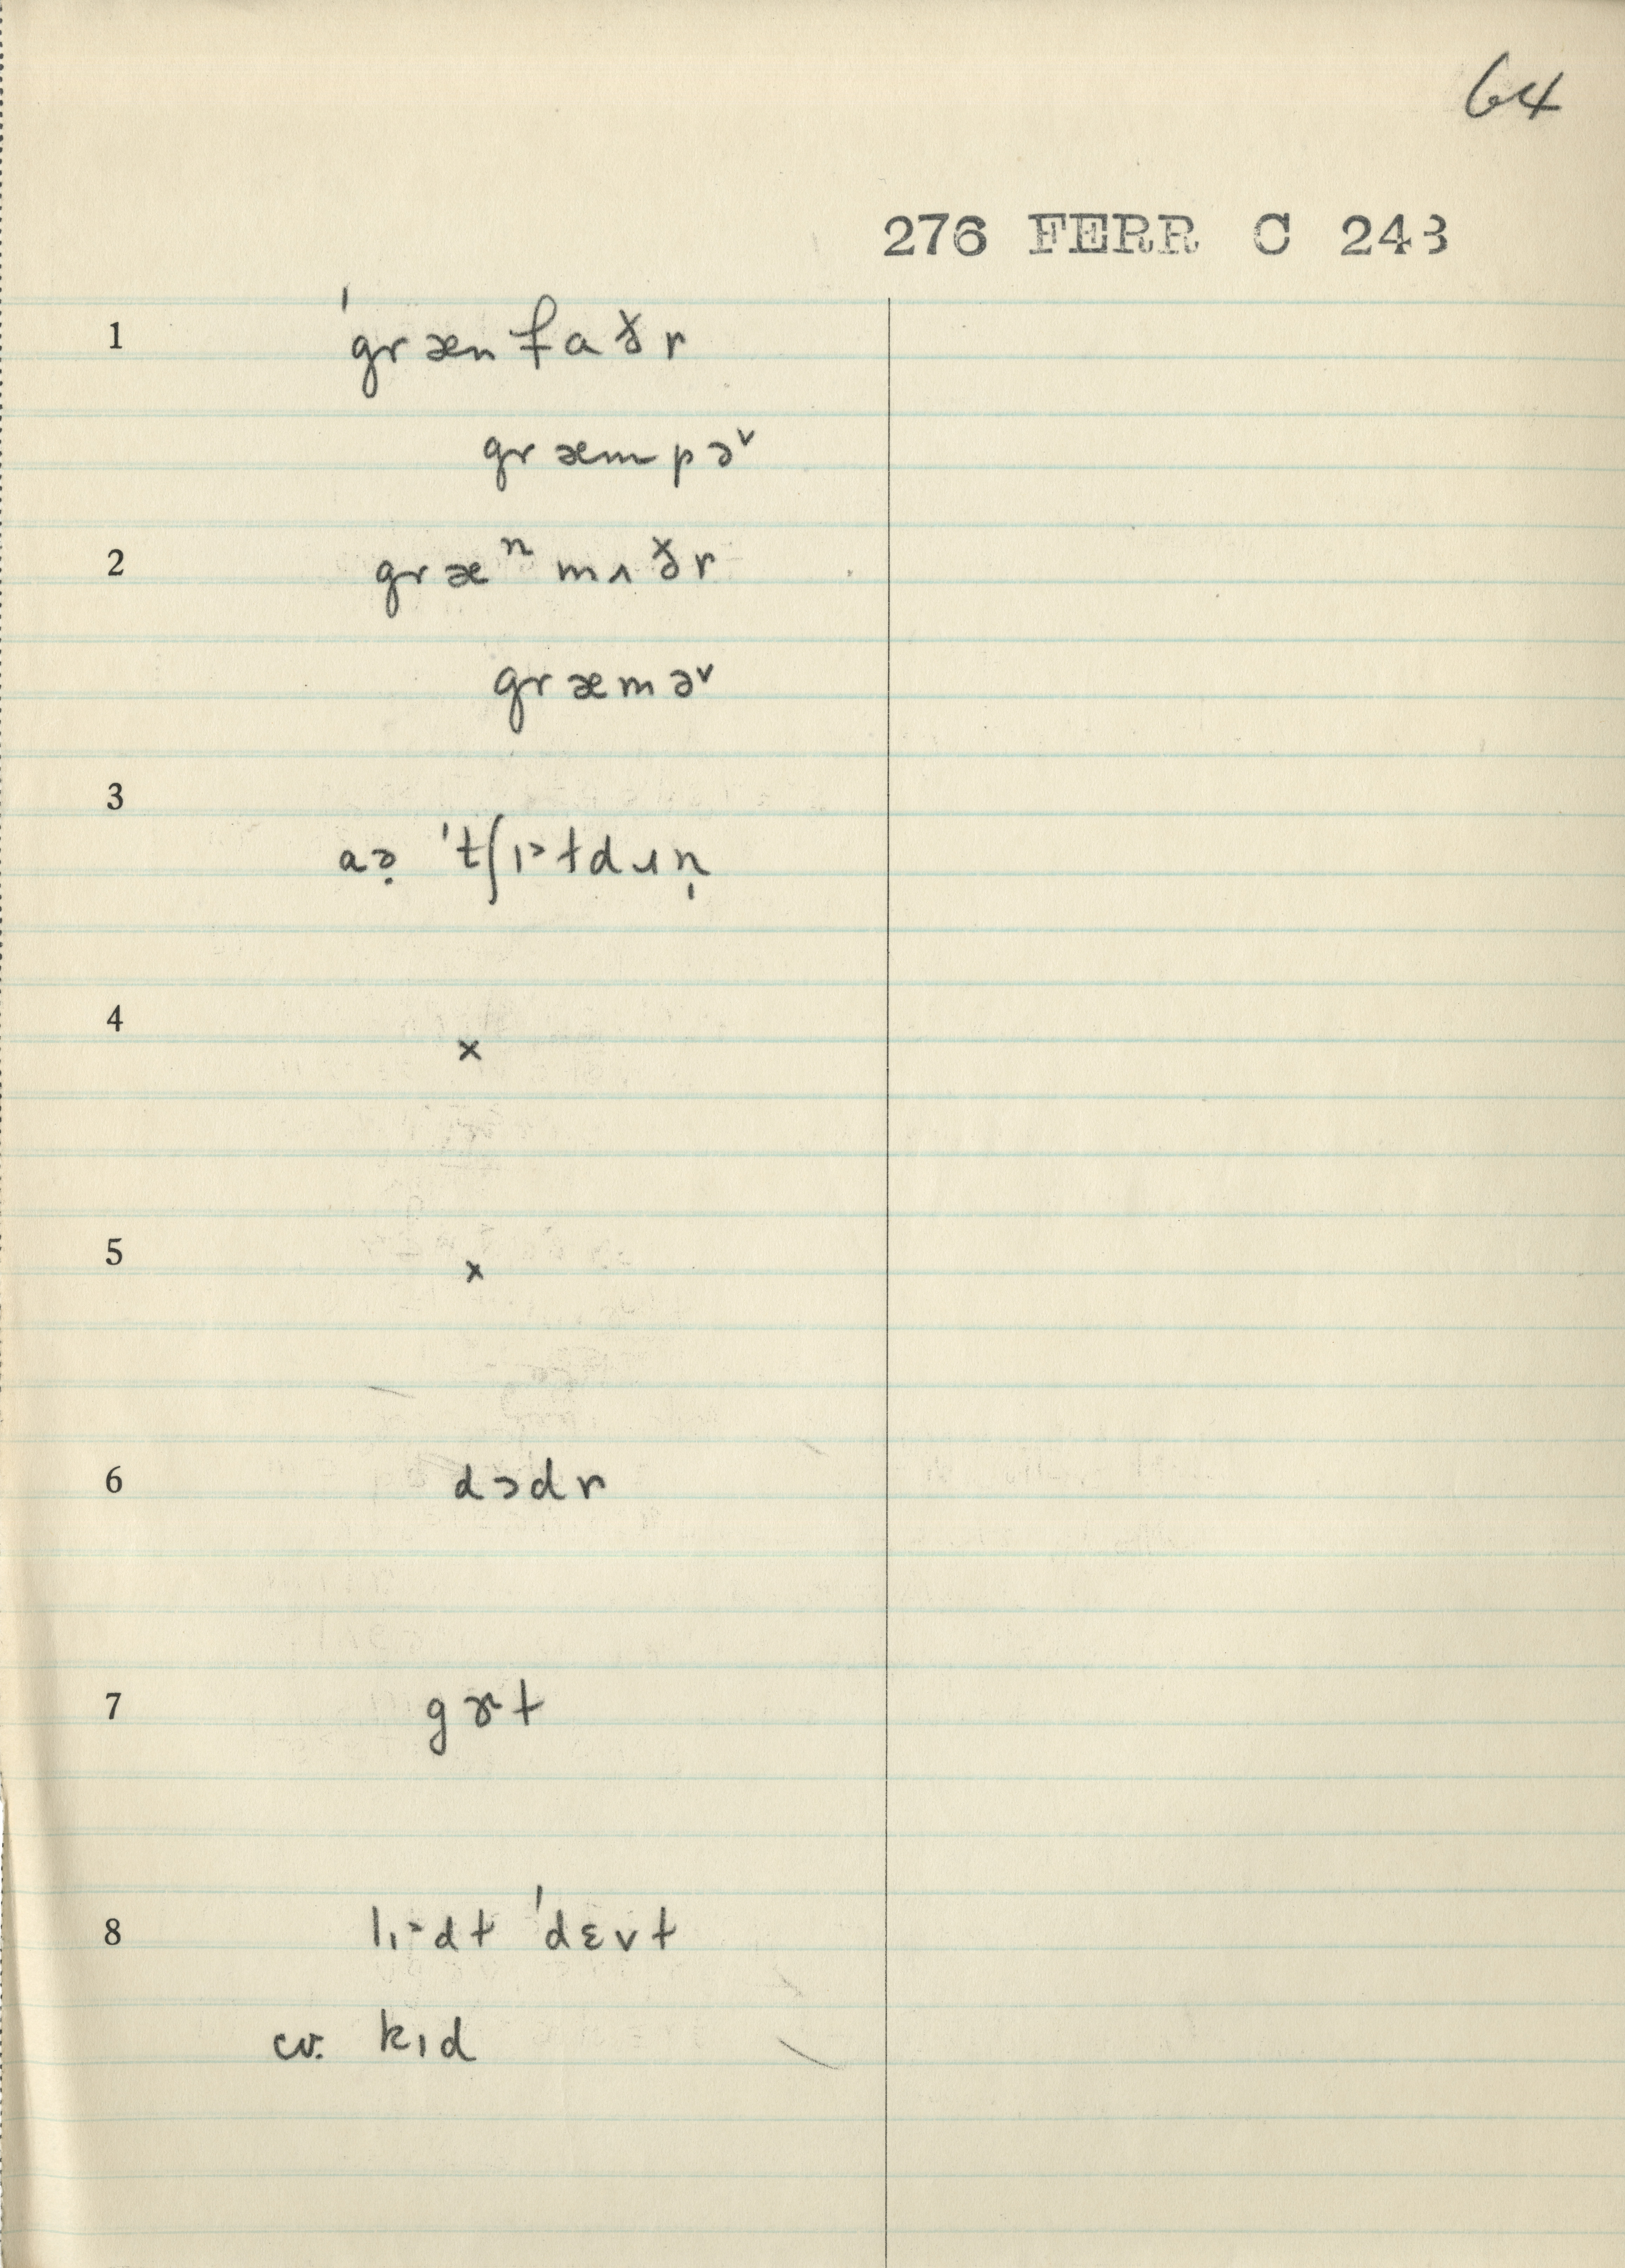 64
276 FERR C 243
1 ˈgrænfaðr
græmpə˅
2 græⁿmʌðr
græmə˅
3 aə̣ ˈtʃɪ˃ɫdɹn̩
4 ×
5 ×
6 dɔdr
7 gɝt
8 lɪ˃dt ˈdɛvt
cv. kɪd